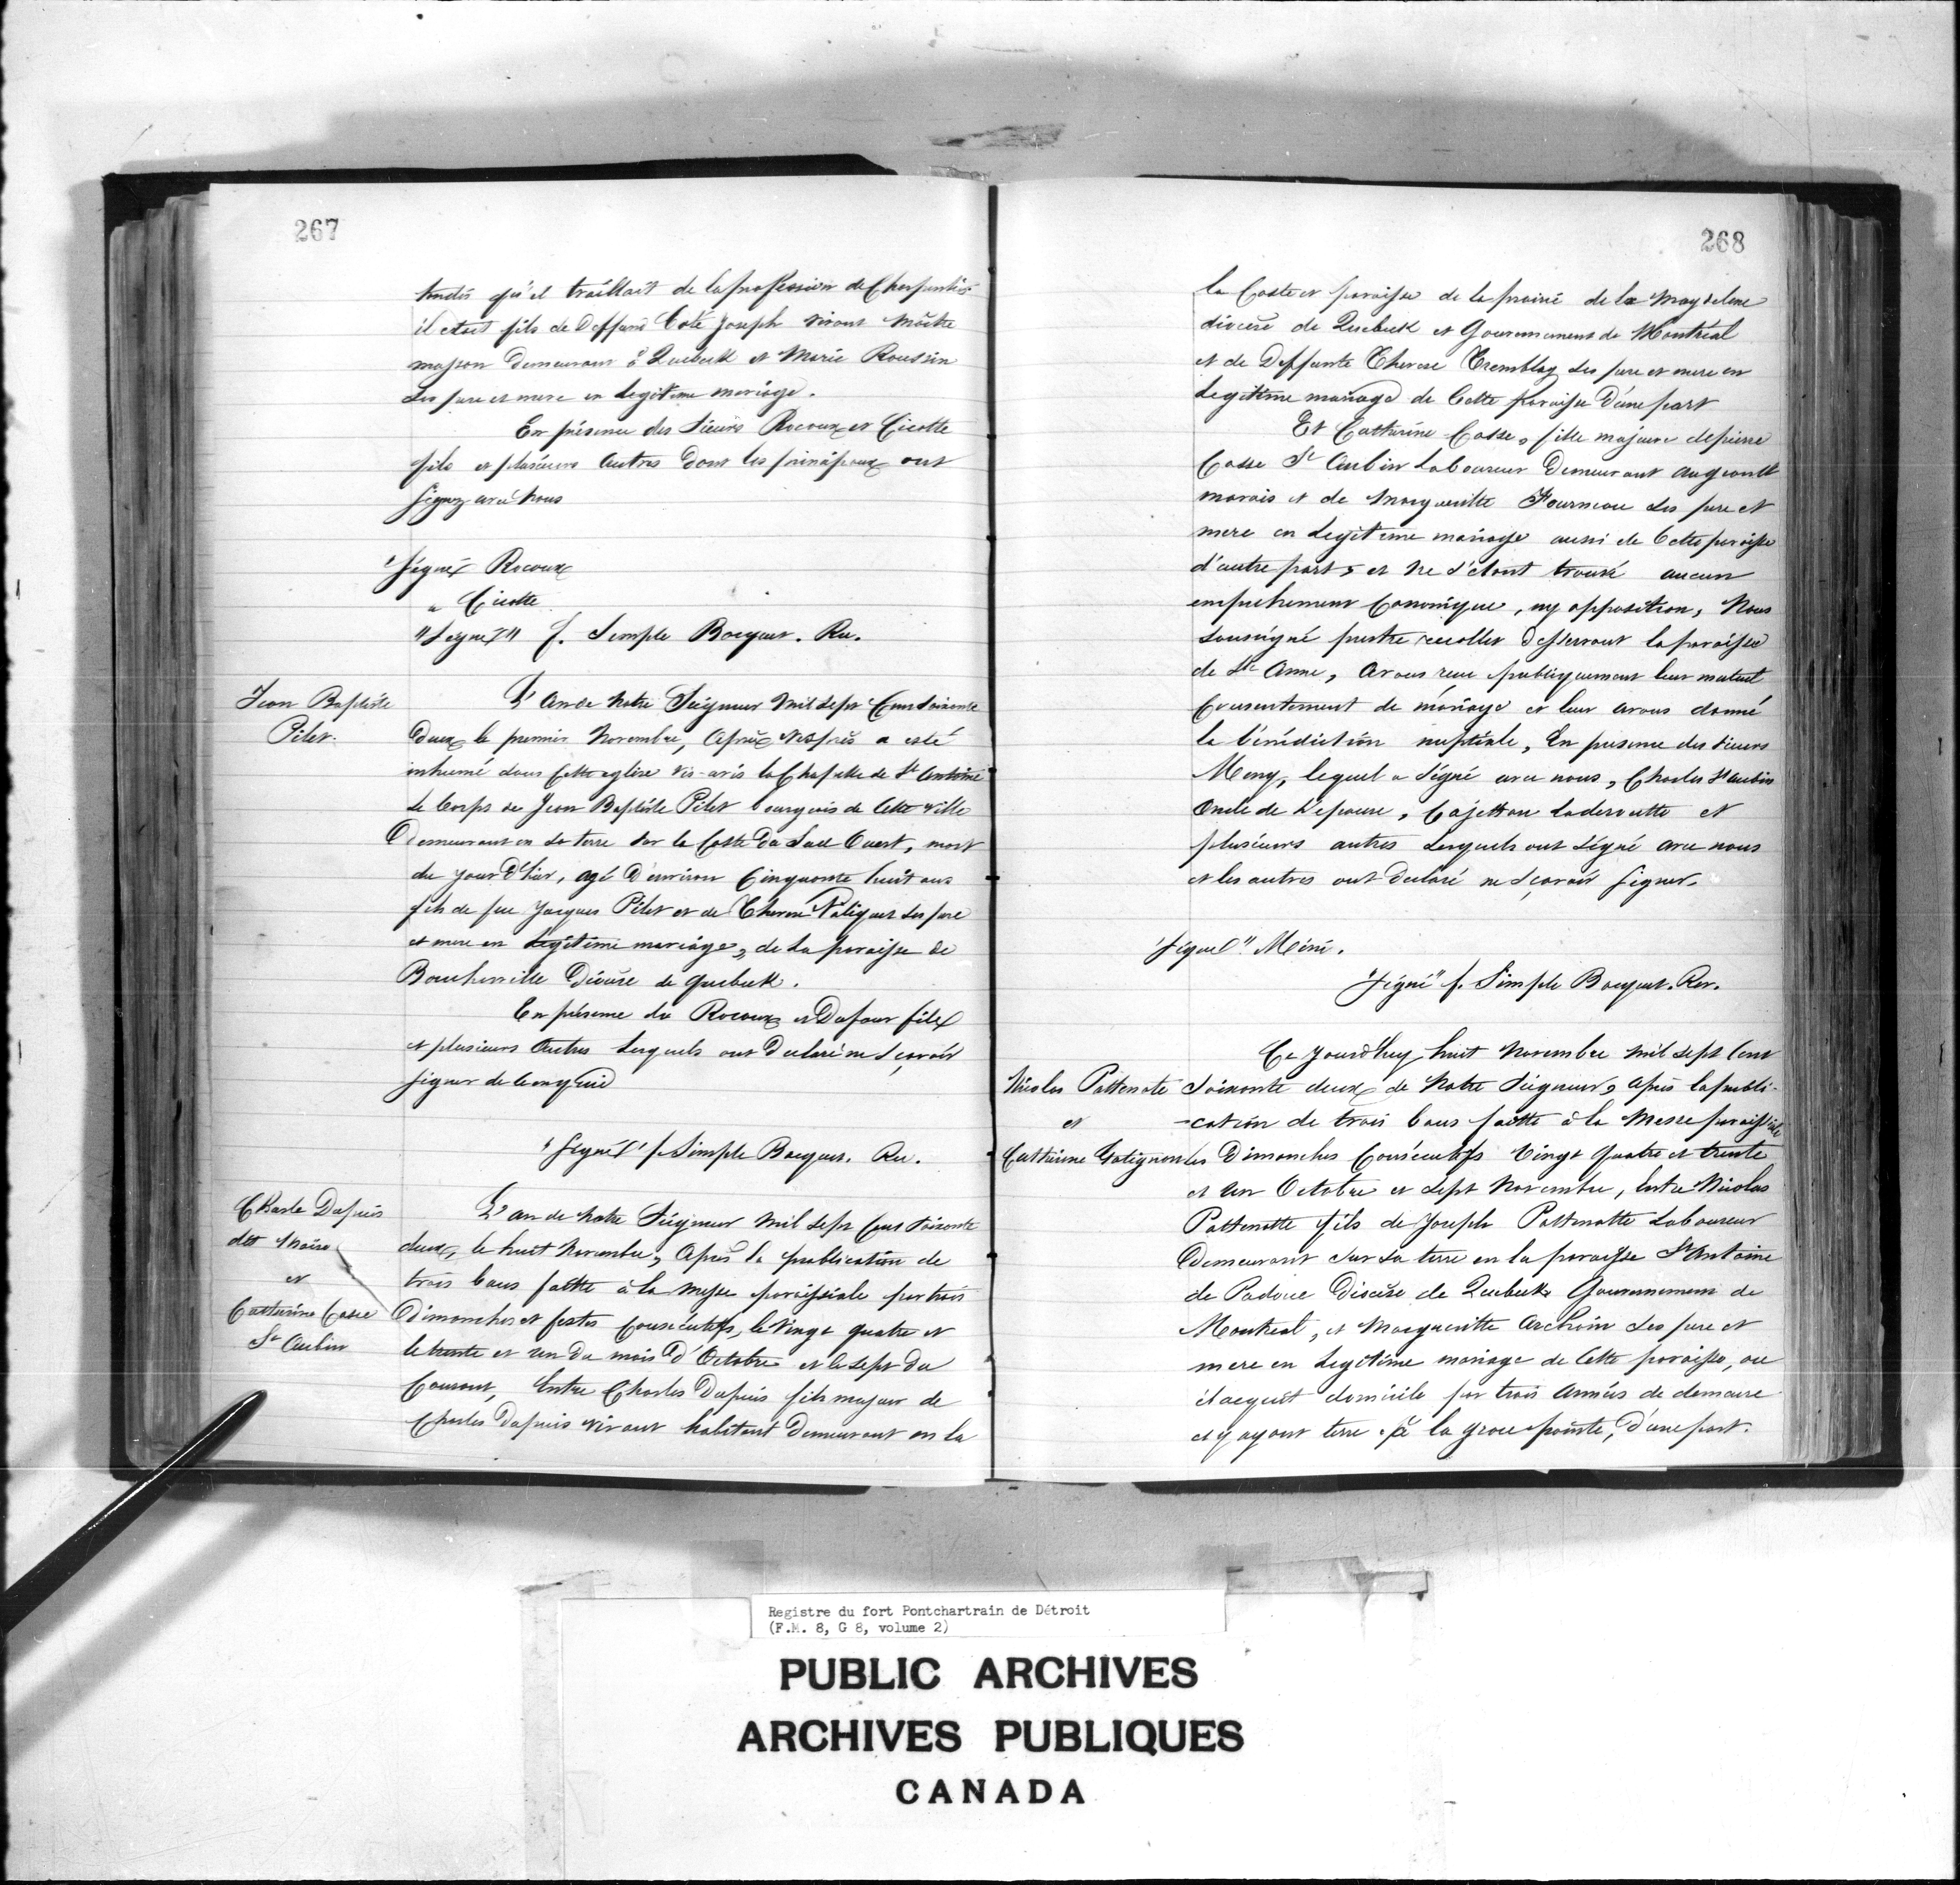 267
tudes qu'il traillait de la profession de Charpentier
il étoit fils de Deffunt Coté Joseph vivant Maitre
masson demeurant à Quebeck et Marie Roussin
Ses pere et mere en legitime mariage.
En présence des Sieurs Rocoux et Cicotte
fils et plusieurs autres dont les principaux ont
signez avec nous
"Signé" Rocoux
" Cicotte
"Signé" f. Simple Bocquet. Rec.
Jean Baptiste
Pilet.
L'An de Notre Seigneur Mil Sept Cent Soixante
Deux le premier Novembre, Après Vespres a esté
inhumé dans Cette eglise vis-avis la Chapelle de St Antoine
Le Corps de Jean Baptiste Pilet bourgeois de Cette ville
Demeurant en Sa terre Sur la Coste du Sud Ouest, mort
du jour D'hier, agé D'environ Cinquante huit ans
fils de feu Jacques Pilet et de Therese Valiquet Ses pere
et mere en Legitime mariage, de La paroisse de
Boucherville Diocèse de quebeck.
En présence de Rocoux et Dufour fils
et plusieurs Autres Lesquels ont Declaré ne Sçavoir
signer de ce enquis
"Signé" f. Simple Bocquet. Rec.
Charle Dupuis
dit
et
Catherine Casse
St Aubin
L'an de Notre Seigneur Mil Sept Cent Soixante
deux, le huit Novembre, Après la publication de
trois bans faitte à la Messe paroissiale par trois
Dimanches et festes Consécutifs, le Vingt quatre et
le trente et un du mois D'Octobre et le Sept du
Courant, Entre Charles Dupuis fils majeur de
Charles Dupuis vivant habitant Demeurant en la
268
la Coste et paroisse de la prairie de la Magdelene
diocese de Quebeck et Gouvernement de Montréal
et de Deffunte Therese Tremblay Ses pere et mere en
Legitime mariage de Cette paroisse D'une part
Et Catherine Casse, fille majeure de pierre
Casse St Aubin Laboureur Demeurant au grand
marais et de Marguerite Fourneau Ses pere et
mere en Legitime mariage aussi de Cette paroisse
d'autre part, et Ne S'étant trouvé aucun
empechement Canonique, ny opposition, Nous
Soussigné prestre recollet desservant la paroisse
de Ste Anne, Avons reçu publiquement leur mutuel
Consentement de mariage et leur avons donné
la bénédiction nuptiale, En presence des Sieurs
Meny, lequel a Signé avec nous, Charles St Aubin
Oncle de L'epouse, Cajettan Laderoutte et
plusieurs autres Lesquels ont Signé avec nous
et les autres ont declaré ne Sçavoir Signer.
"Signé" Méni.
"Signé" f. Simple Bocquet. Rec.
Nicolas Pattenote
et
Catherine Gatignon
Ce Jourd'huy huit Novembre Mil Sept Cent
Soixante deux de Notre Seigneur, après la publi-
-cation de trois bans faitte à la Messe paroissiale
les Dimanches Consécutifs Vingt Quatre et trente
et un Octobre et Sept Novembre, Entre Nicolas
Pattenotte fils de Joseph Pattenotte Laboureur
Demeurant Sur Sa terre en la paroisse St Antoine
de Padoue Diocèse de Quebeck Gouvernement de
Montreal, et Marguerite Ses pere et
mere en Legitime mariage de Cette paroisse, ou
il acquit domicile par trois Années de demeure
et y ayant terre à la grose pointe, D'une part.
Registre du fort Pontchartrain de Détroit
(F.M. 8, G 8, volume 2)
PUBLIC ARCHIVES
ARCHIVES PUBLIQUES
CANADA